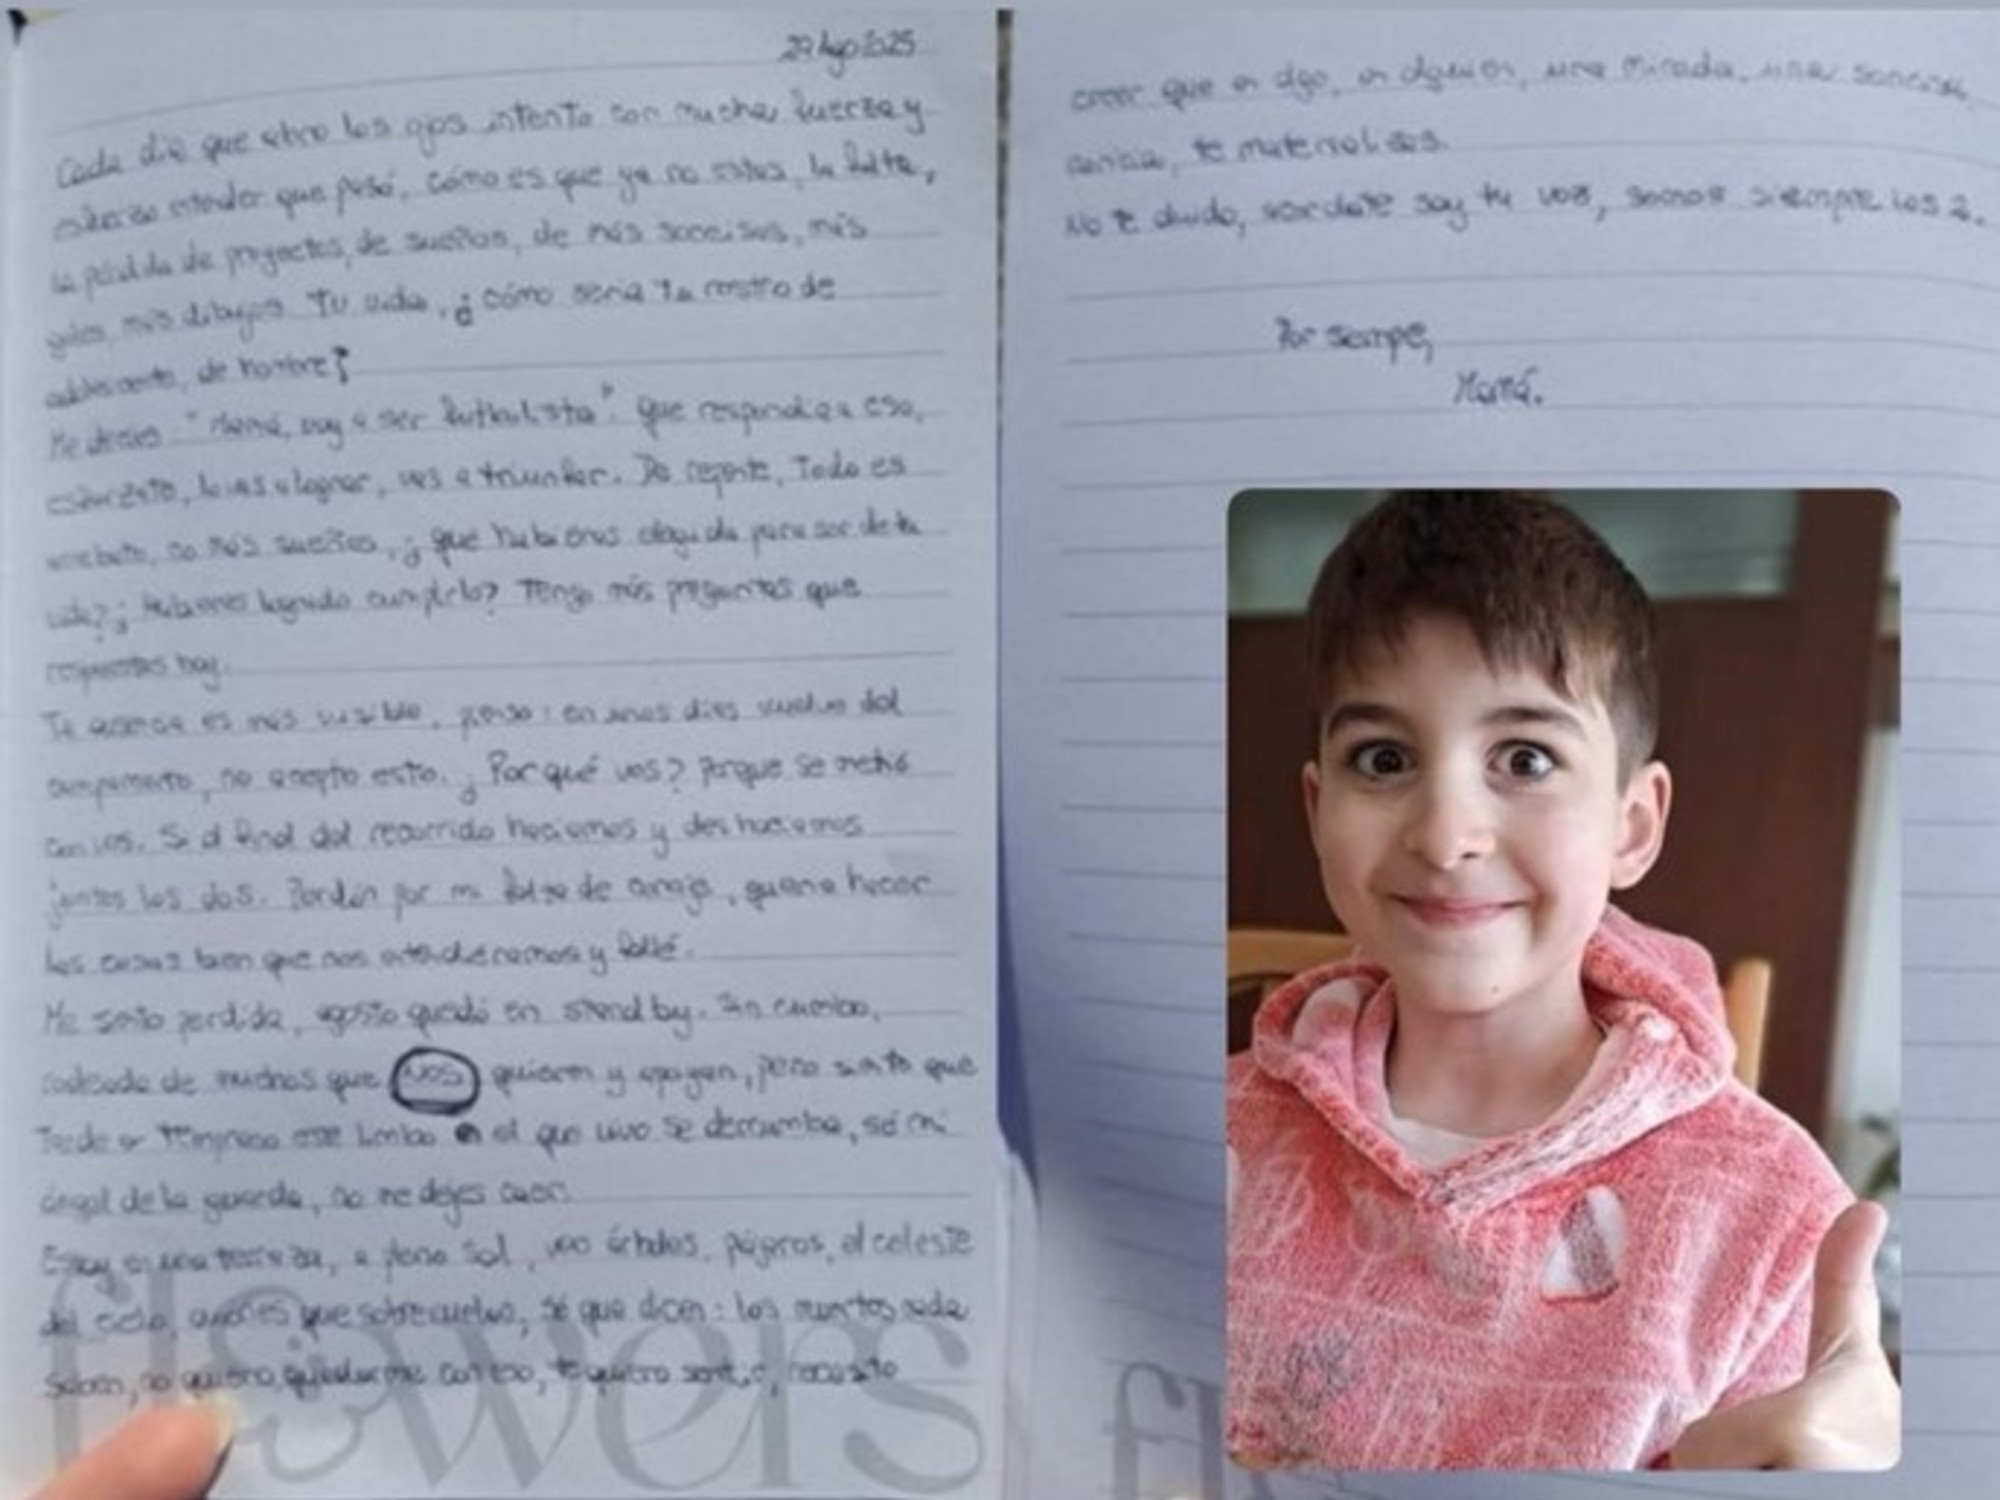 29 Ago 2025
Cada día que abro los ojos intento con mucha fuerza y
esfuerzo entender que pasó, cómo es que ya no estas, la falta,
la pérdida de proyectos, de sueños, de más sonrisas, más
goles, más dibujos. Tu vida, ¿cómo sería tu rostro de
adolescente, de hombre?
Me decías "Mamá, voy a ser futbolista". Que respondía a eso,
esfuerzate, lo vas a lograr, vas a triunfar. De repente, todo es
arrebato, no más sueños, ¿que hubieras elegido para ser de tu
vida? ¿Hubieras logrado cumplirlo? Tengo más preguntas que
respuestas hoy.
Tu ausencia es más visible, pienso: en unos días vuelve del
campamento, no acepto esto. ¿Por qué vos? Porque se metió
con vos. Si al final del recorrido hacíamos y deshacíamos
juntos los dos. Perdón por mi falta de coraje, quería hacer
las cosas bien que nos atendieramos y fallé.
Me siento perdida, agosto quedó en stand by. Sin rumbo,
rodeada de muchos que nos quieren y apoyan, pero siento que
tarde o temprano este limbo en el que vivo se derrumba, sé mi
ángel de la guarda, no me dejes caer.
Estoy en una terraza, a pleno sol, veo árboles, pájaros, el celeste
del cielo, aviones que sobrevuelan, sé que dicen: los muertos nada
saben, no quiero quedarme con eso, te quiero sentir, necesito
creer que en algo, en alguien, una mirada, una sonrisa,
caricia, te materialices.
No te olvido, acordate soy tu voz, somos siempre los 2.
Por siempre,
Mamá.
flowers
fl